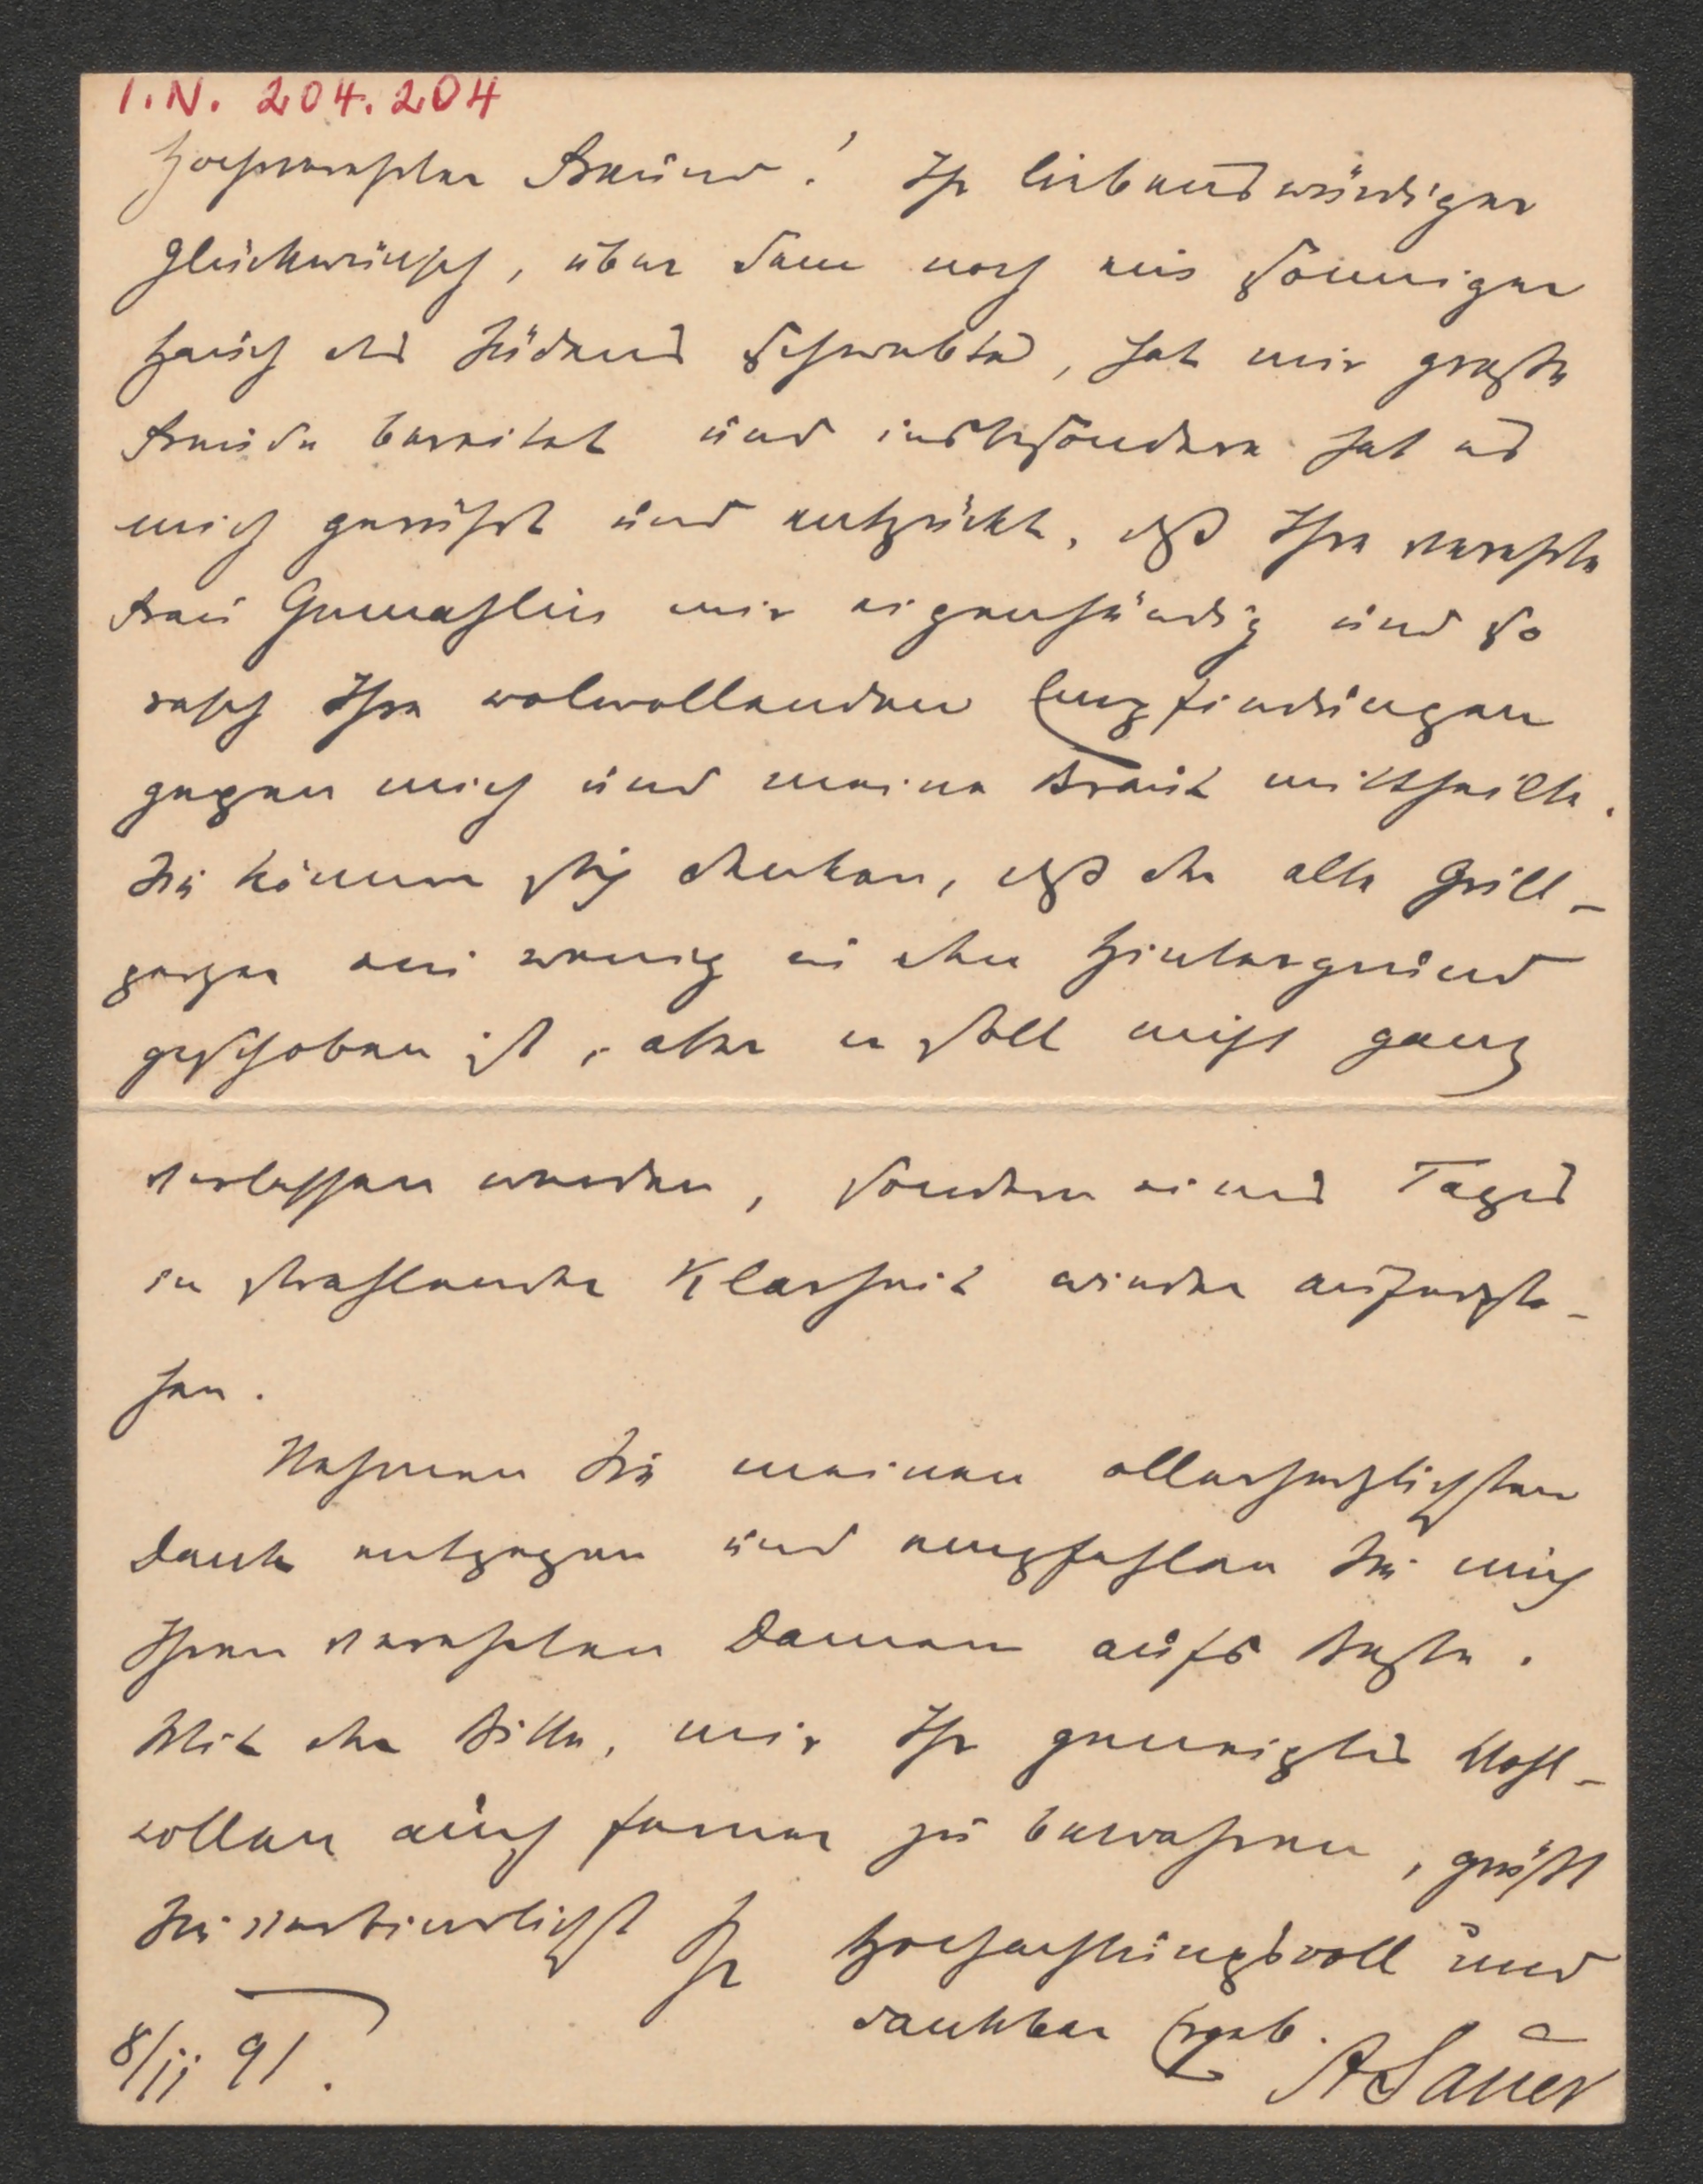 I.N. 204.204
Hochverehrter Freund! Ihr liebenswürdiger
Glückwunsch, über dem noch ein sonniger
Hauch des Südens schwebte, hat mir große
Freude bereitet und insbesondere hat es
mich gerührt und entzückt, daß Ihre verehrte
Frau Gemahlin mir eigenhändig und so
rasch Ihre wolwollenden Empfindungen
gegen mich und meine Braut mittheilte.
Sie können sich denken, daß der alte Grill-
parzer ein wenig in den Hintergrund
geschoben ist, aber er soll nicht ganz
verlassen werden, sondern eines Tages
in strahlender Klarheit wieder auferste-
hen.
Nehmen Sie meinen allerherzlichsten
Dank entgegen und empfehlen Sie mich
Ihren verehrten Damen aufs Beste.
Mit der Bitte, mir Ihr geneigtes Wohl-
wollen auch ferner zu bewahren, grüßt
Sie verbindlichst Ihr Hochachtungsvoll und
dankbar Ergeb.
8/11 91. ASauer